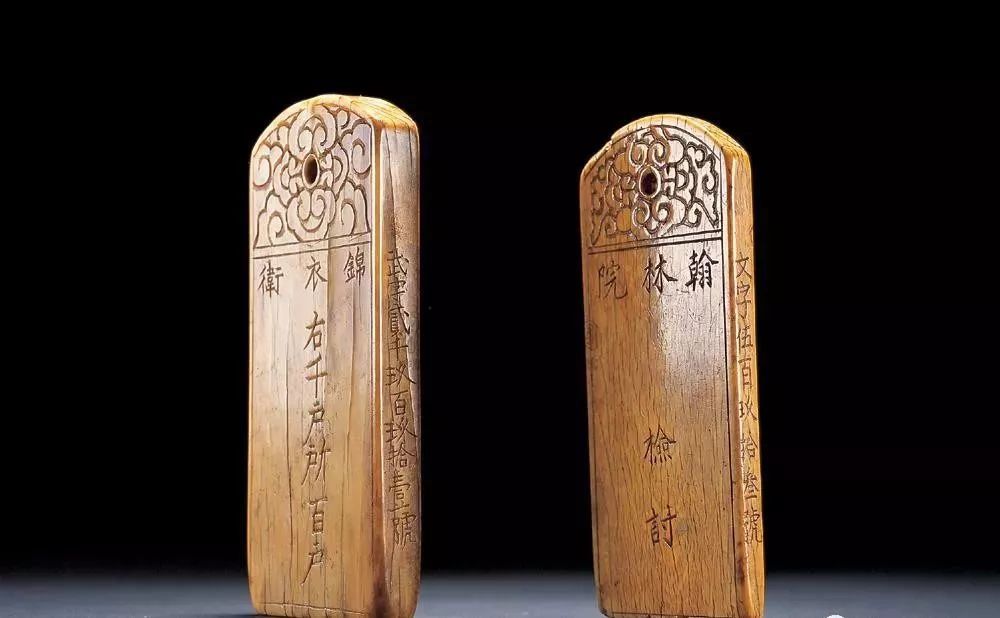 錦衣衛
右千户所百户
武字貳千玖百玖拾壹號
翰林院
檢討
文字伍百玖拾叁號